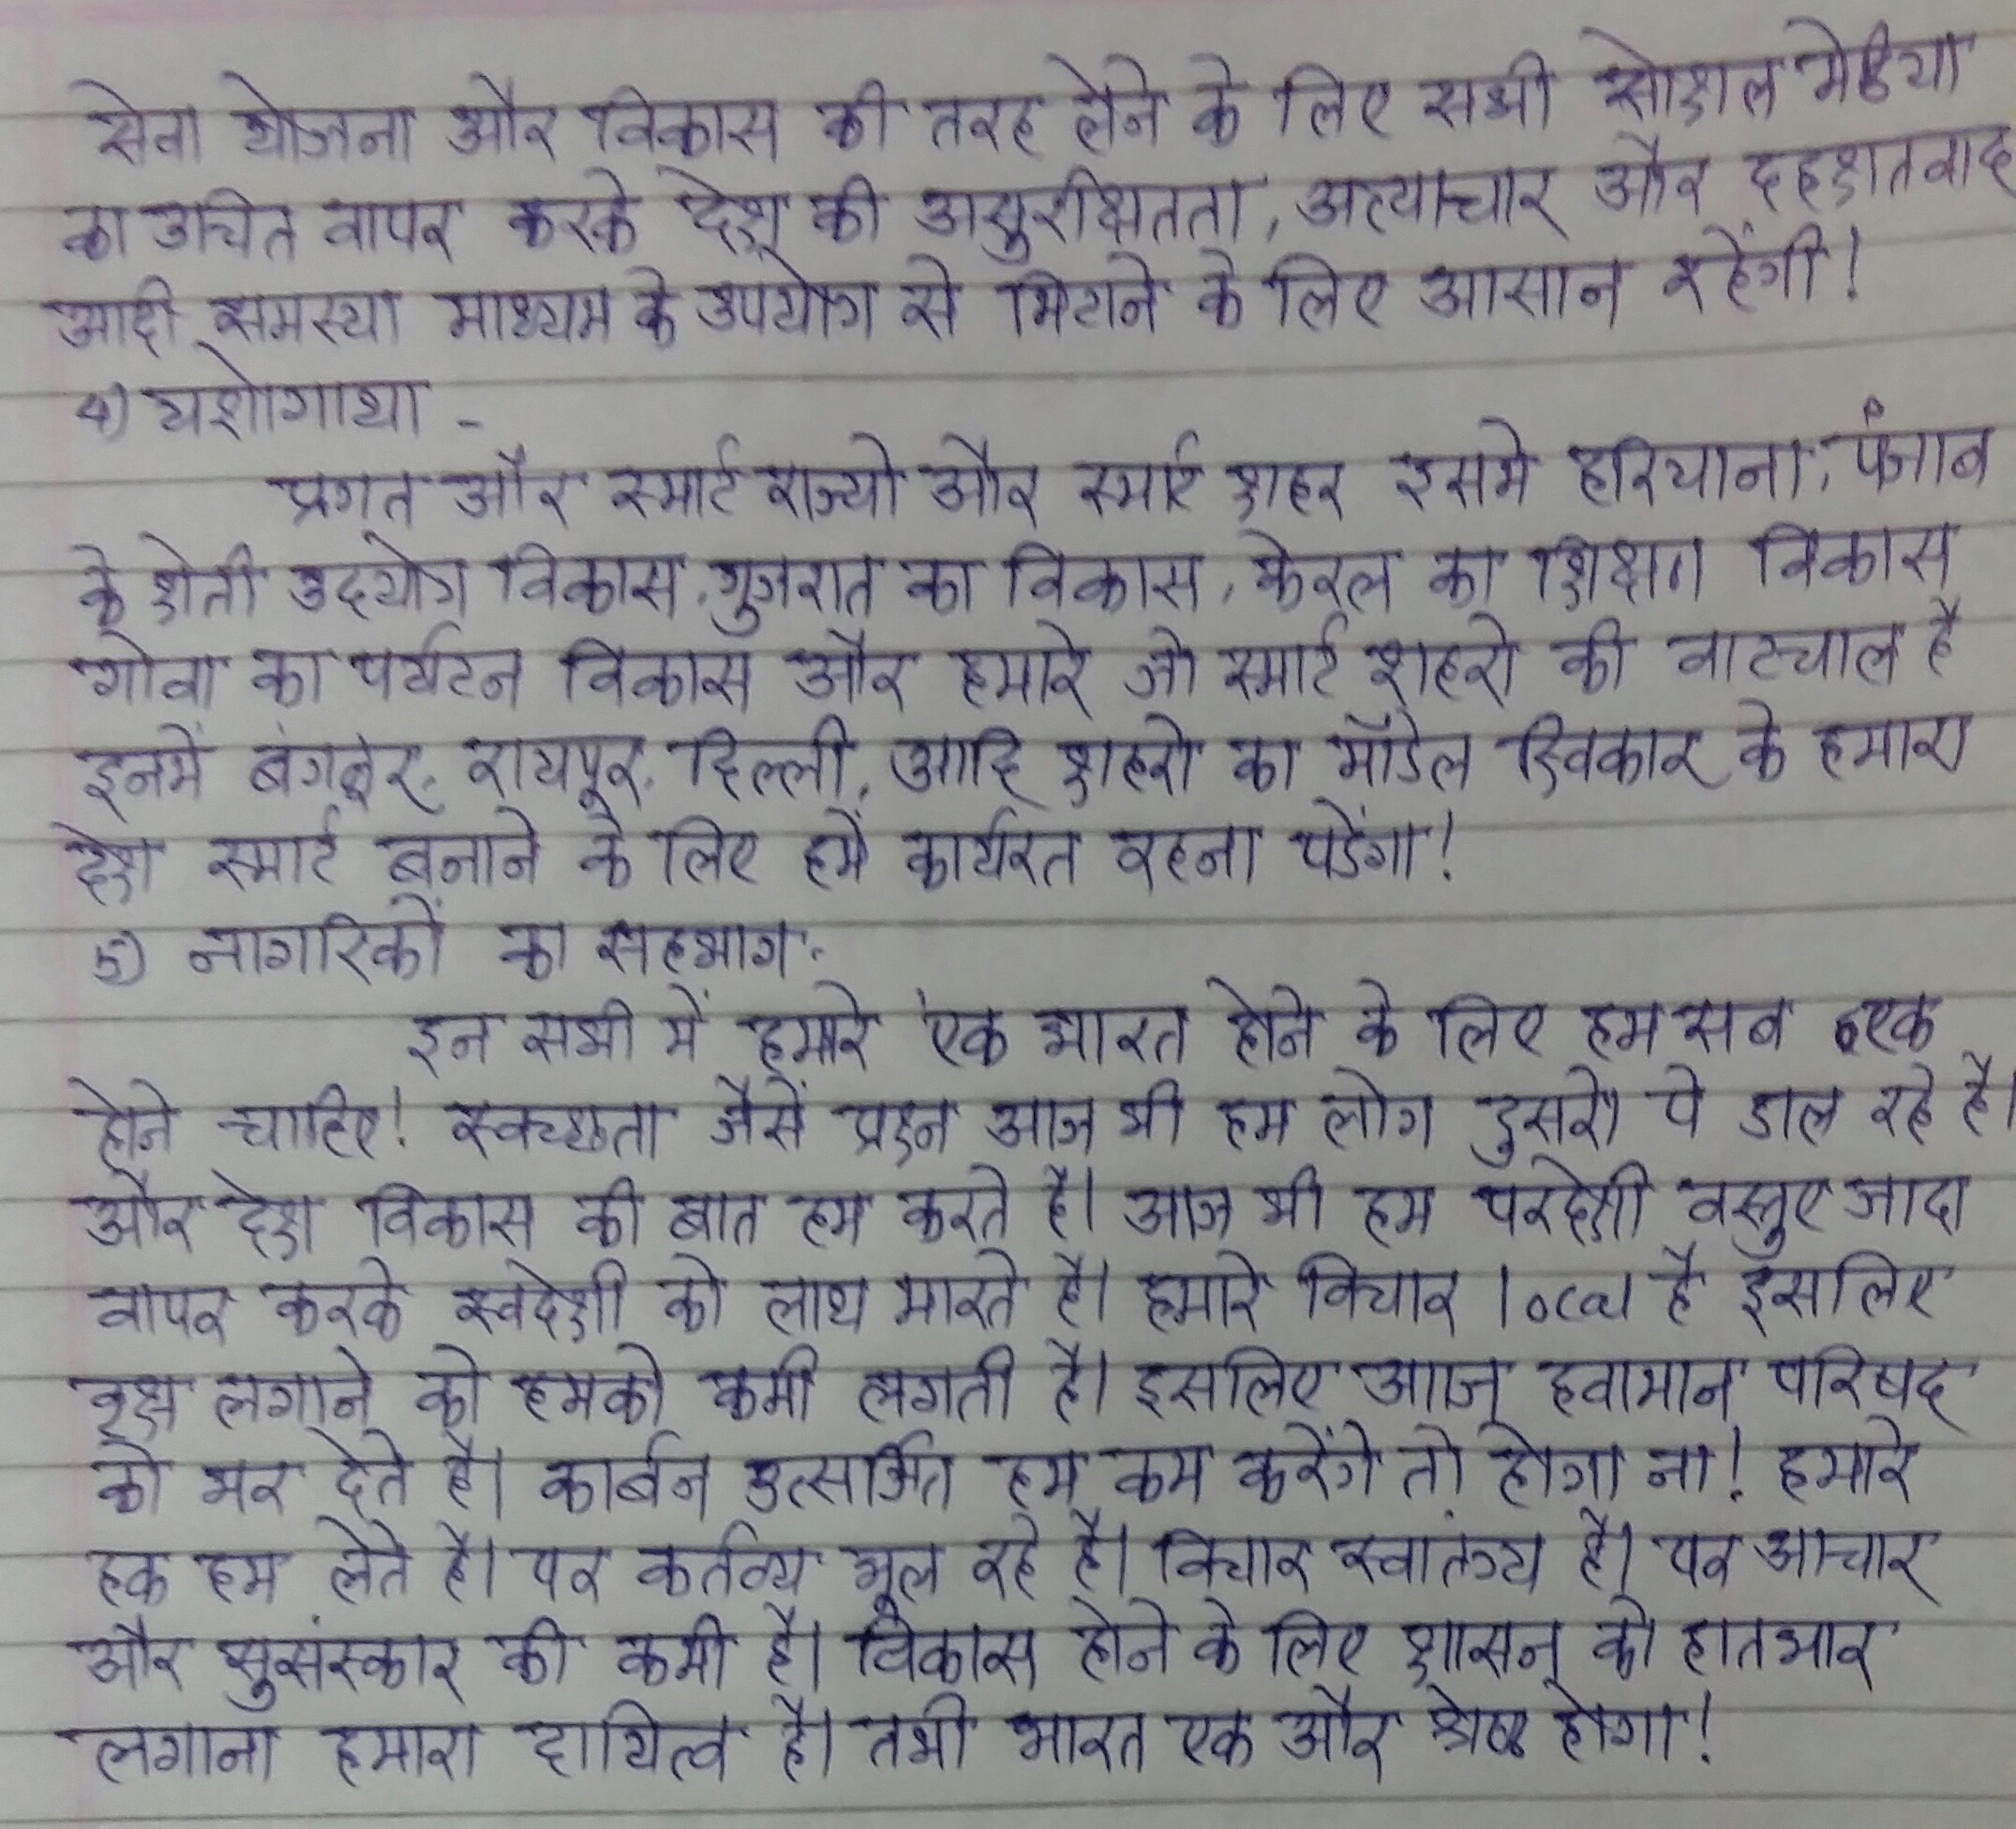 सेवा योजना और विकास की तरह होने के लिए सभी सोशल मेडिया
का उचित वापर करके देश की असुरक्षितता, अत्याचार और दहशतवाद
आदी समस्या माध्यम के उपयोग से मिटाने के लिए आसान रहेंगी!
4) यशोगाथा -
प्रगत और स्मार्ट राज्यो और स्मार्ट शहर इसमे हरियाना, पंजाब
के शेती उदयोग विकास, गुजरात का विकास, केरल का शिक्षण विकास
गोवा का पर्यटन विकास और हमारे जो स्मार्ट शहरो की वाटचाल है
इनमें बंगलूर, रायपूर, दिल्ली, आदि शहरो का मॉडेल स्विकार के हमारा
देश स्मार्ट बनाने के लिए हमें कार्यरत रहना पडेंगा!
5) नागरिकों का सहभाग -
इन सभी में हमारे एक भारत होने के लिए हम सब एक
होने चाहिए! स्वच्छता जैसें प्रश्न आज भी हम लोग दुसरो पे डाल रहे है।
और देश विकास की बात हम करते है। आज भी हम परदेशी वस्तुए जादा
वापर करके स्वदेशी को लाथ मारते है। हमारे विचार local है इसलिए
वृक्ष लगाने को हमको कमी लगती है। इसलिए आज हवामान परिषद
को भर देते है। कार्बन उत्सर्जित हम कम करेंगे तो होगा ना! हमारे
हक हम लेते है। पर कर्तव्य भूल रहे है। विचार स्वातंत्र्य है। पर आचार
और सुसंस्कार की कमी है। विकास होने के लिए शासन को हातभार
लगाना हमारा दायित्व है। तभी भारत एक और श्रेष्ठ होगा!